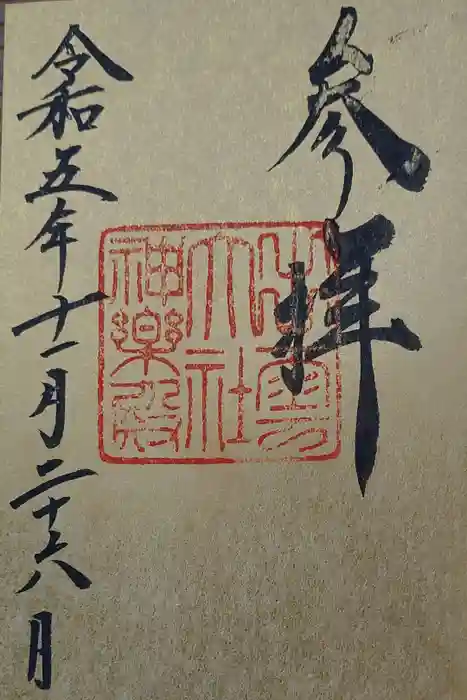 参拝
出雲
大社
神樂殿
令和五年十一月二十六月